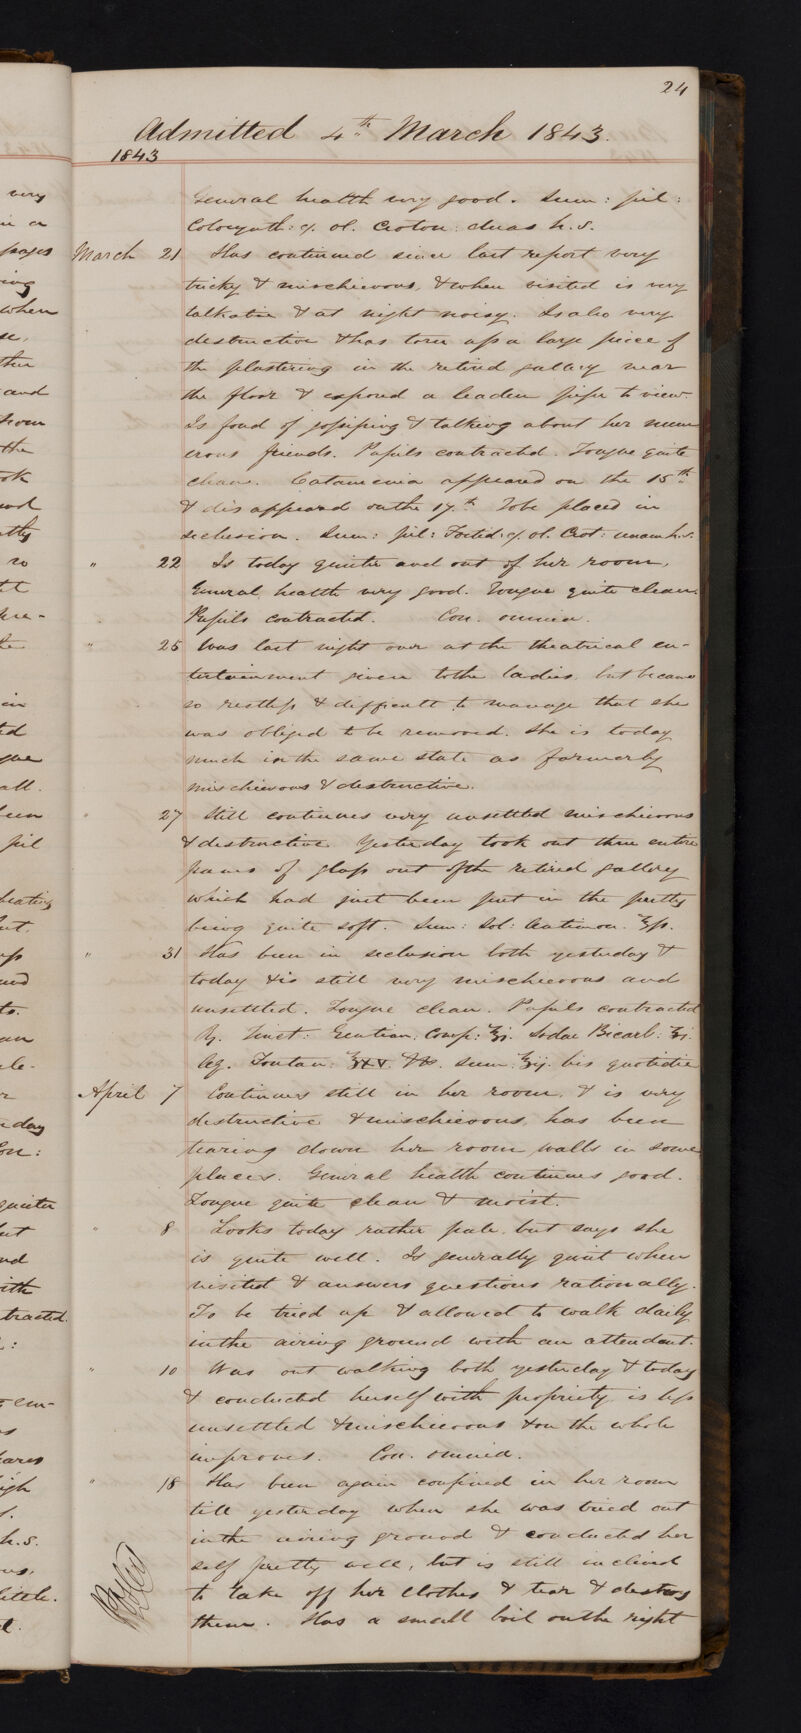 24
Admitted 4th March 1843.
1843
General health very good. Sum: pil:
Colocynth: c. ol. Croton: duas h.s.
March 21 Has continued since last report very
tricky & mischievous, & when visited is very
talkative & at night noisy. Is also very
destructive & has torn up a large piece of
the plastering in the retired gallery near
the floor & exposed a leaden pipe to view.
Is fond of gossiping & talking about her num
erous friends. Pupils contracted. Tongue quite
clean. Catamenia appeared on the 15th
& disappeared on the 17th To be placed in
seclusion. Sum: pil: Foetid: c. ol. Crot: unam h.s.
" 22 Is today quieter and out of her room.
General health very good. Tongue quite clean.
Pupils contracted. Con. omnia.
" 25 Was last night over at the theatrical en-
tertainment given to the ladies, but became
so restless & difficult to manage that she
was obliged to be removed. She is today
much in the same state as formerly
mischievous & destructive.
" 27 Still continues very unsettled mischievous
& destructive. Yesterday took out three entire
panes of glass out of the retired gallery
which had just been put in the putty
being quite soft. Sum: Sol: Antimon. ℥ſs.
" 31 Has been in seclusion both yesterday &
today & is still very mischievous and
unsettled. Tongue clean. Pupils contracted
℞. Tinct: Gentian: Comp: ℥j. Sodae Bicarb:
Aq. Fontan: Sum: ℥ij. bis quotidie
April 7 Continues still in her room, & is very
destructive & mischievous, has been
tearing down her room walls in some
places. General health continues good.
Tongue quite clean & moist.
" 8 Looks today rather pale, but says she
is quite well. Is generally quiet when
visited & answers questions rationally.
To be tried up & allowed to walk daily
in the airing ground with an attendant.
" 10 Was out walking both yesterday & today
& conducted herself with propriety, is less
unsettled & mischievous & on the whole
improves. Con. omnia.
" 18 Has been again confined in her room
till yesterday when she was tried out
in the airing ground & conducted her
self pretty well, but is still inclined
to take off her clothes & tear & destroy
them. Has a small boil on the right